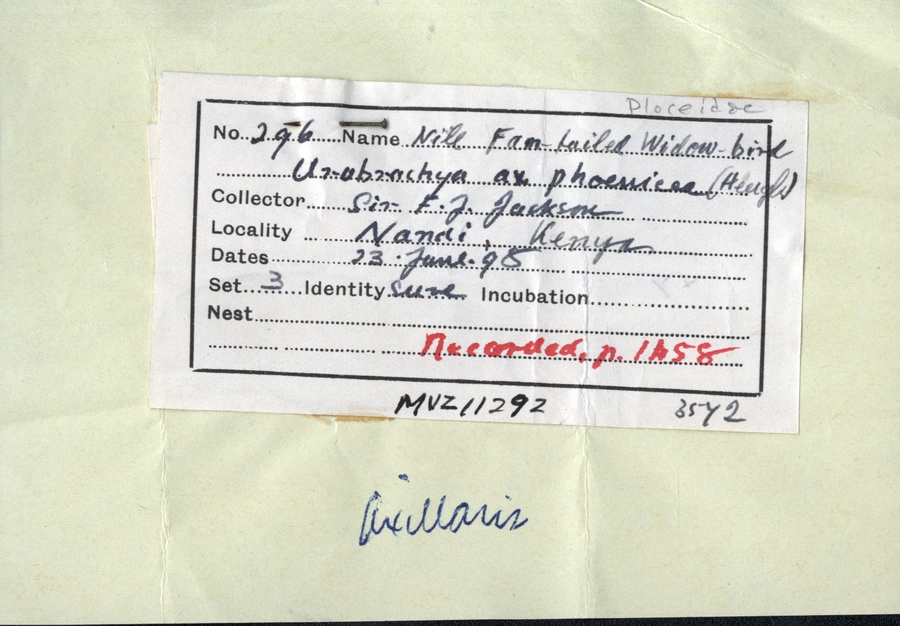 Ploceidae
No. 296 Name Nile Fan-tailed Widow-bird
Urobrachya ax phoenicea (Heugl)
Collector Sir F. J. Jackson
Locality Nandi, Kenya
Dates 23 June 98
Set 3 Identity sure Incubation
Nest
Recorded, p. 1458
MVZ 11292 3542
axillaris